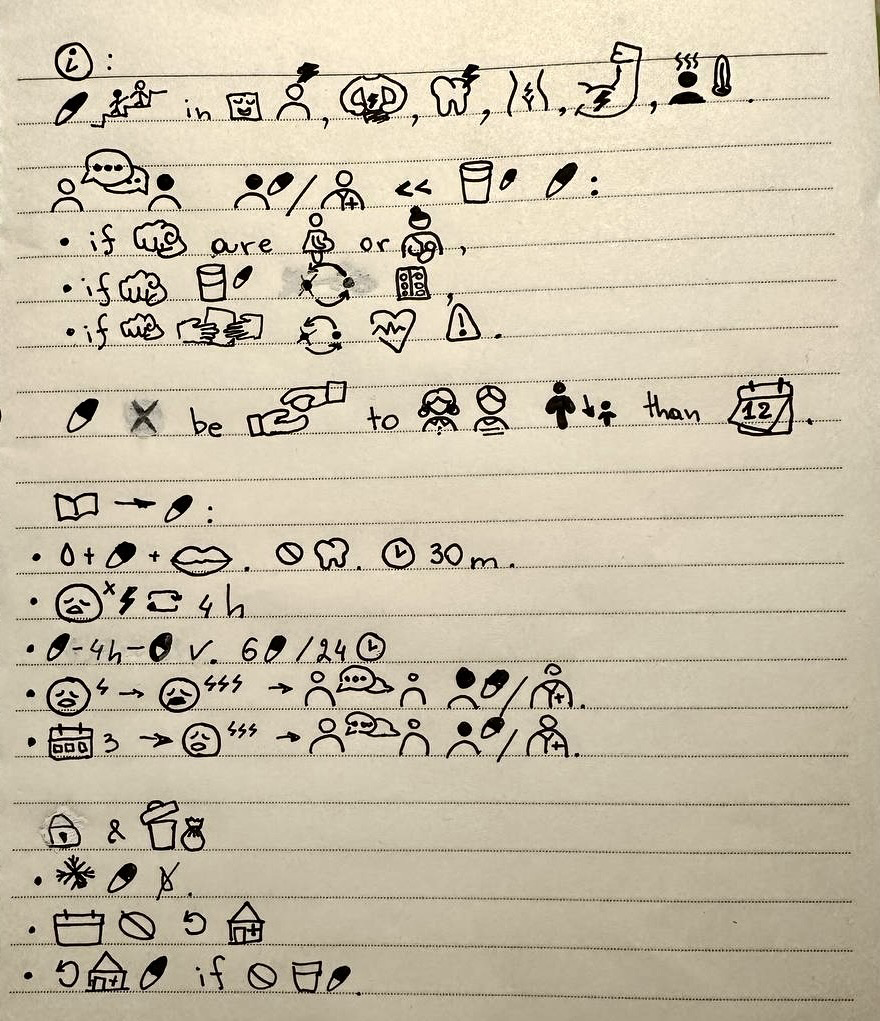 i :
in , , , , , .
/ << :
• if are or ,
• if ,
• if .
X be to than 12 .
→ :
• + + . . 30 m .
• x 4 h
• - 4h - v. 6 / 24
• → → / .
• 3 → → / .
&
• .
•
• if .